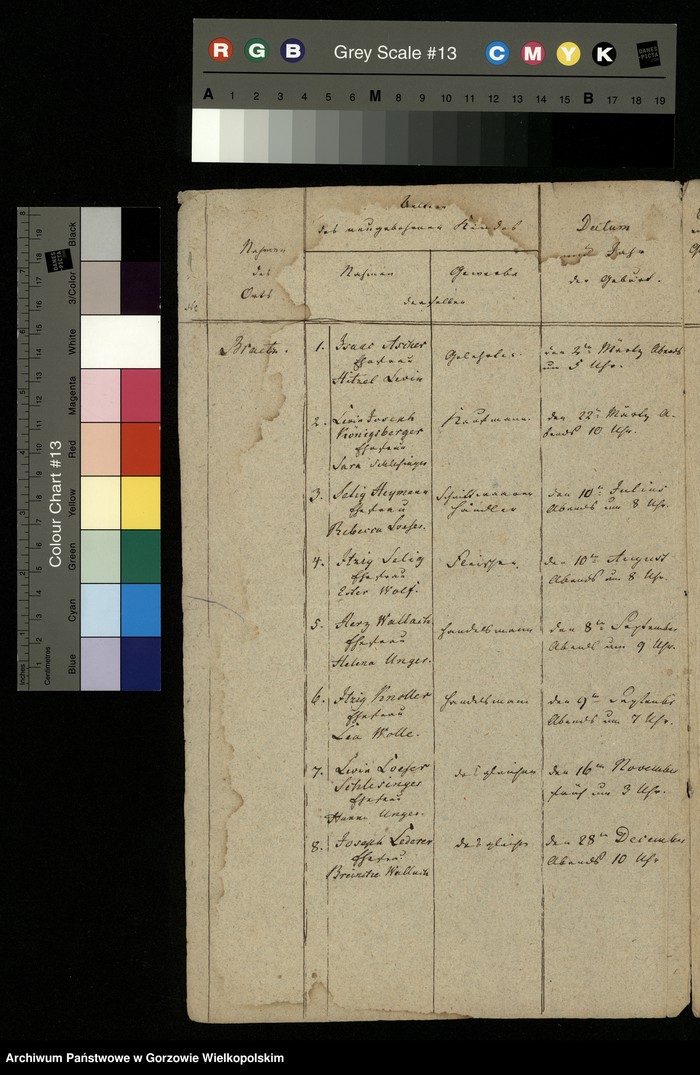 R G B Grey Scale #13 C M Y K DANES PICTA .COM
A 1 2 3 4 5 6 M 8 9 10 11 12 13 14 15 B 17 18 19
Colour Chart #13
Blue Cyan Green Yellow Red Magenta White 3/Color Black
Inches Centimetres
des neugebohrnen Kindes
Datum
und Jahr
der Geburt.
Nahmen
des
Orts
Nahmen Gewerbe
derselben
No
Braetz.
1. Isaac Ascher
Ehefrau
Hitzel Lewin
Gelehrter.
den 2ten Märtz Abends
um 5 Uhr.
2. Lewin Joseph
Königsberger
Ehefrau
Sara Schlesinger
Kaufmann.
den 22ten Märtz A-
bends 10 Uhr.
3. Selig Heymann
Ehefrau
Rebecca Loeser.
Schnittwaaren
händler
den 10ten Julius
Abends um 8 Uhr.
4. Itzig Selig
Ehefrau
Ester Wolf.
Fleischer.
den 10ten August
Abends um 8 Uhr.
5. Herz Wallach
Ehefrau
Helena Unger.
Handelsmann
den 8ten September
Abends um 9 Uhr.
6. Itzig Knoller
Ehefrau
Lea Wolle.
Handelsmann
den 9ten September
Abends um 7 Uhr.
7. Lewin Loeser
Schlesinger
Ehefrau
Hanne Unger.
desgleichen
den 16ten November
früh um 3 Uhr.
8. Joseph Lederer
Ehefrau
Wallach
desgleichen
den 28ten December
Abends 10 Uhr
Archiwum Państwowe w Gorzowie Wielkopolskim